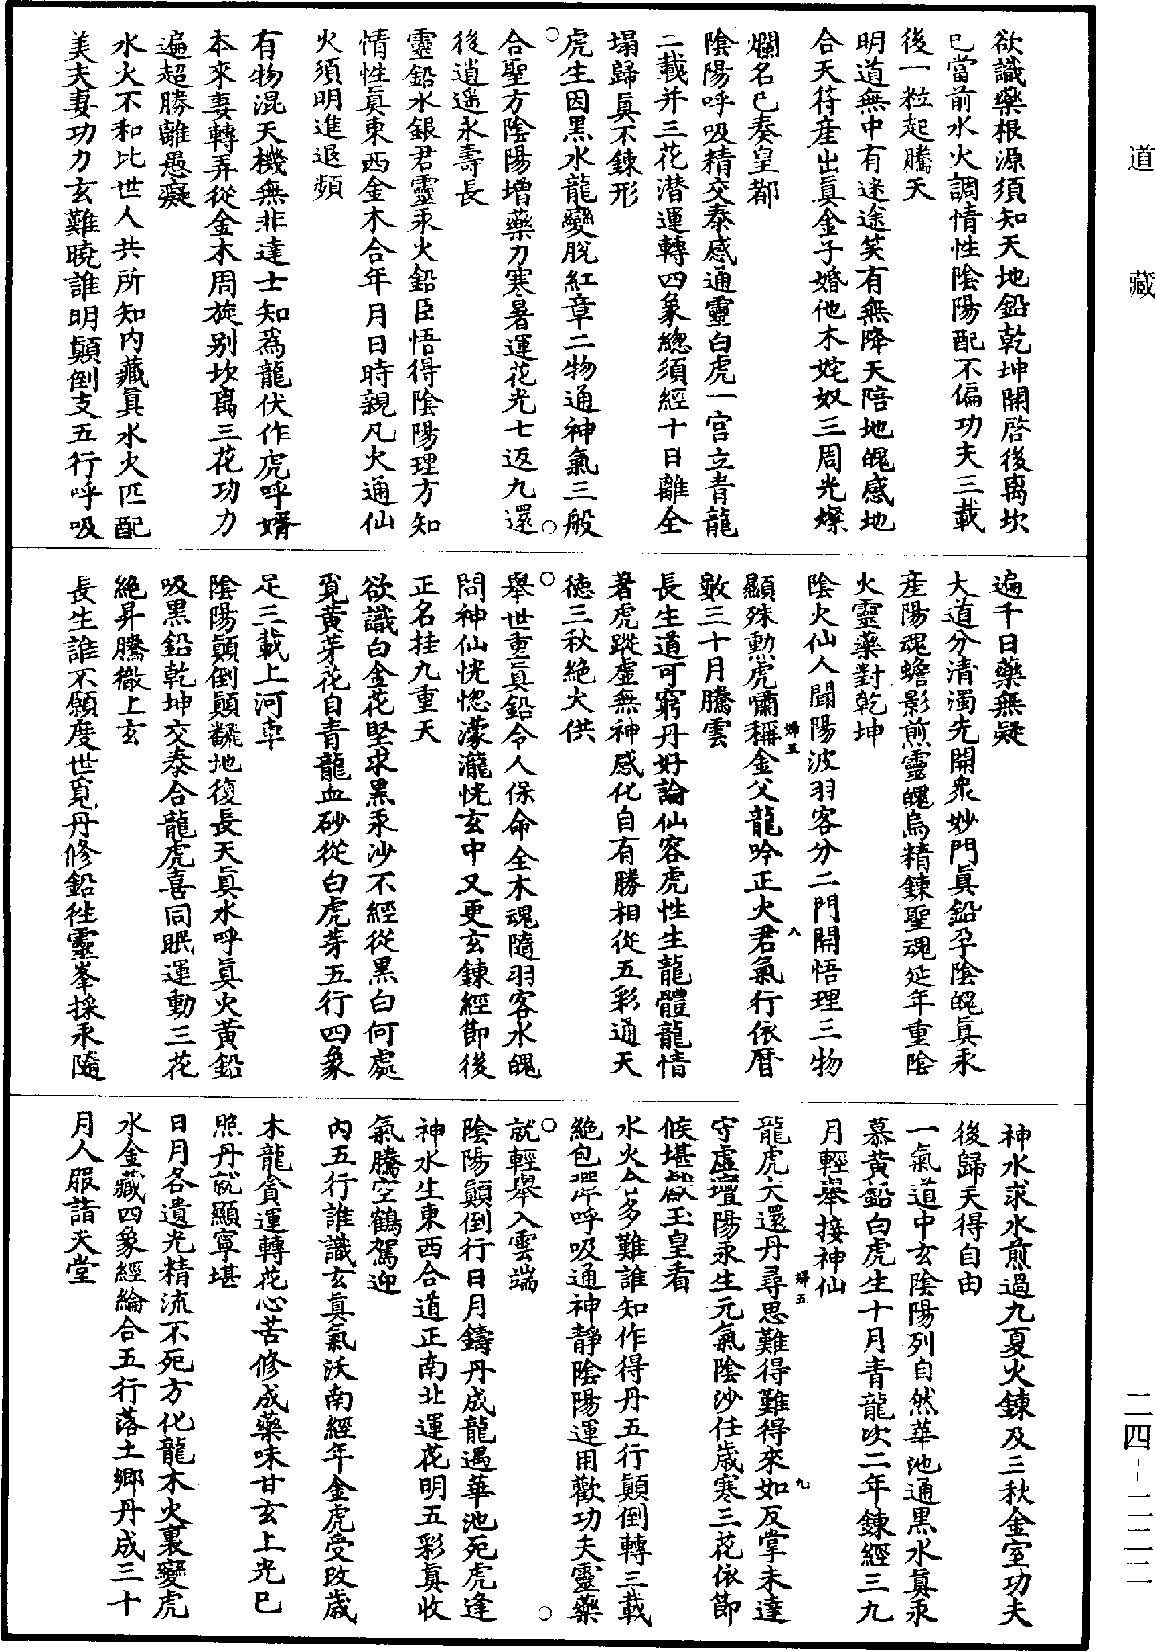 欲識藥根源須知天地鉛乾坤開啓後离坎
已當前水火調情性陰陽配不偏功夫三載
後一粒起騰天
明道無中有迷途笑有無降天陪地魄感地
合天符産出真金子婚他木姹奴三周光燦
爛名已奏皇都
陰陽呼吸精交泰感通靈白虎一宮立青龍
二載并三花潜運轉四象總須經十日離全
塌歸真不鍊形
虎生因黑水龍變脫紅章二物通神氣三般
合聖方陰陽增藥力寒暑運花光七返九還
後逍遥永壽長
靈鉛水銀君靈汞火鉛臣悟得陰陽理方知
情性真東西金木合年月日時親凡火通仙
火須明進退頻
有物混天機無非達士知為龍伏作虎呼婿
本來妻轉弄從金木周旋别坎离三花功力
遍超勝離愚癡
水火不和比世人共所知内藏真水火匹配
美夫妻功力玄難曉誰明顛倒支五行呼吸
遍千日藥無疑
大道分清濁先開衆妙門真鉛孕陰魄真汞
産陽魂蟾影煎靈魄烏精鍊聖魂延年重陰
火靈藥對乾坤
陰火仙人聞陽波羽客分二門開悟理三物
顯殊勳虎嘯稱金父龍吟正火君氣行依曆
數三十月騰雲
長生道可窮丹好論仙容虎性生龍體龍情
著虎蹤虛無神感化自有勝相從五彩通天
德三秋絶火供
舉世重真鉛令人保命全木魂隨羽客水魄
問神仙恍惚濛瀧恍玄中又更玄鍊經節後
正名挂九重天
欲識白金花堅求黑汞沙不經從黑白何處
覓黄芽花自青龍血砂從白虎芽五行四象
足三載上河車
陰陽顛倒顛飜地復長天真水呼真火黄鉛
吸黑鉛乾坤交泰合龍虎喜同眠運動三花
絶昇騰徹上玄
長生誰不願度世覓丹修鉛徃靈峯採汞隨
神水求水煎過九夏火鍊及三秋金室功夫
後歸天得自由
一氣道中玄陰陽列自然華池通黑水真汞
慕黄鉛白虎生十月青龍吹二年鍊經三九
月輕舉接神仙
龍虎大還丹尋思難得難得來如反掌未達
守虛壇陽汞生元氣陰沙任歲寒三花依節
候堪獻玉皇看
水火合多難誰知作得丹五行顛倒轉三載
絶包彈呼吸通神静陰陽運用歡功夫靈藥
就輕舉入雲端
陰陽顛倒行日月鑄丹成龍遇華池死虎逢
神水生東西合道正南北運花明五彩真收
氣騰空鶴駕迎
内五行誰識玄真氣沃南經年金虎受攺歲
木龍貪運轉花心苦修成藥味甘玄上光已
照丹就顯寧堪
日月各遺光精流不死方化龍木火裏變虎
水金藏四象經綸合五行落土鄉丹成三十
月人服詣天堂
道藏
二四-二二二